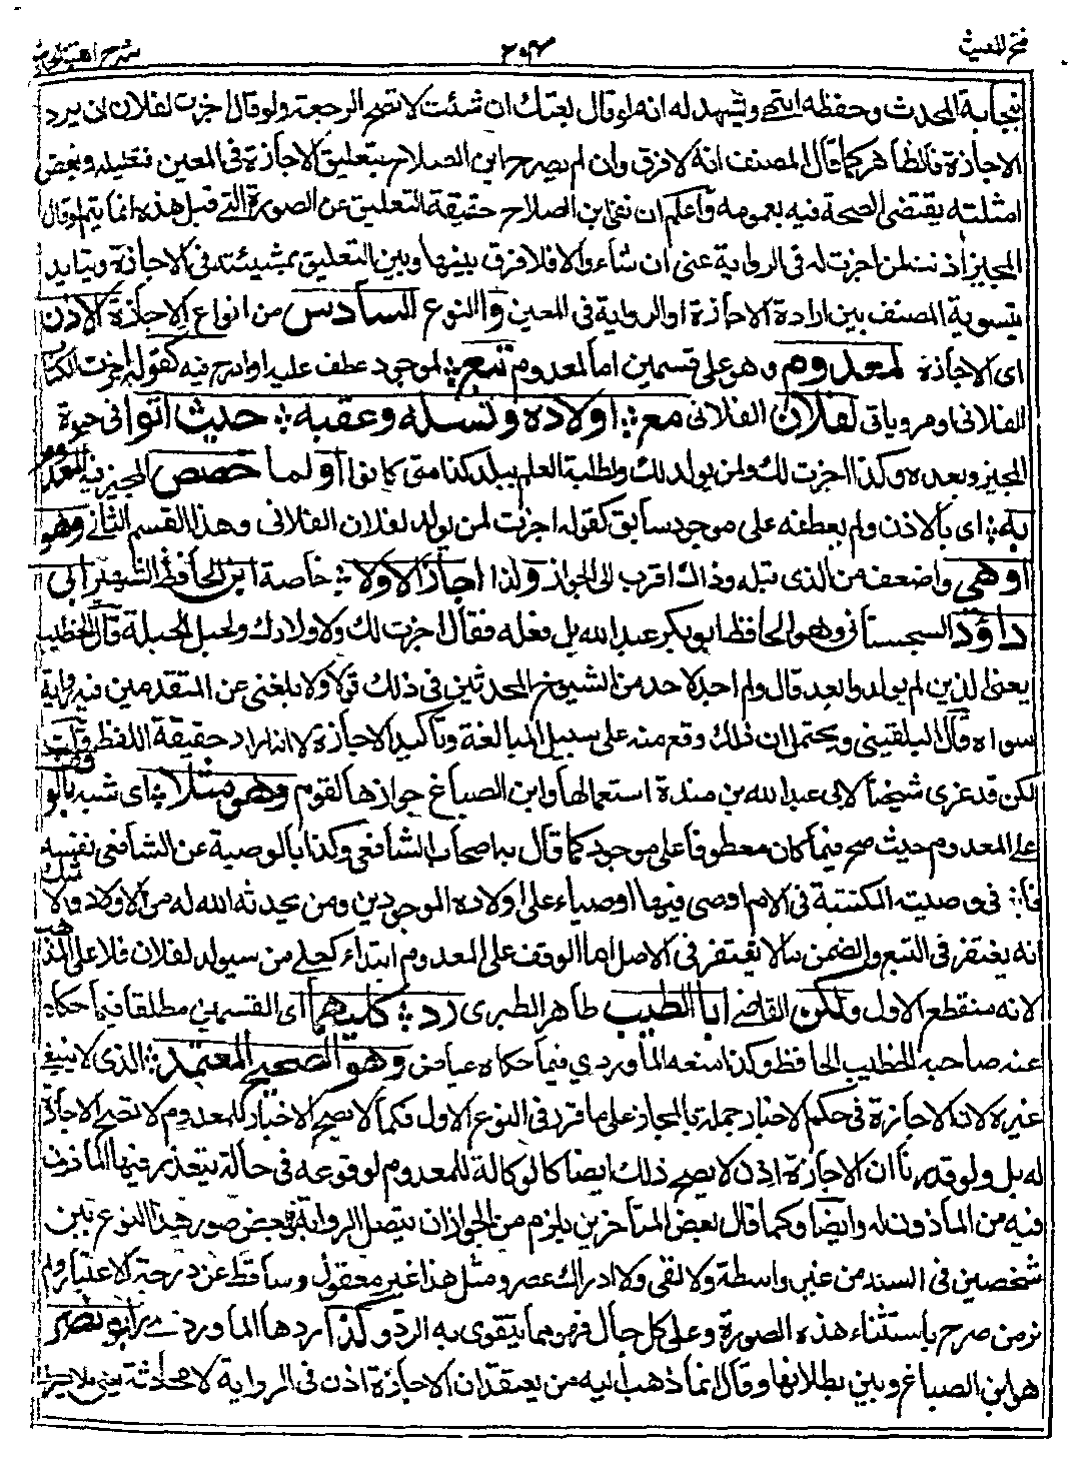 فتح المغيث
٢٠٤
شرح الفية الحديث
نجابة المحدث وحفظه انتهى ويشهد له انه لو قال بعتك ان شئت لا تصح الرجعة ولو قال اجزت لفلان ان يرد
الاجازة فالظاهر كما قال المصنف انه لا فرق وان لم يصرح ابن الصلاح بتعليق الاجازة في المعين فتعليله وبعض
امثلته يقتضى الصحة فيه بعمومه واعلم ان نفى ابن الصلاح حقيقة التعليق عن الصورة التي قبل هذه انما يتم لو قال
المجيز اذ ننلن اجزت له في الرواية عنى ان شاء والا فلا فرق بينها وبين التعليق بمشيئته في الاجازة ويتايد
بتسوية المصنف بين ارادة الاجازة او الرواية في المعين والنوع السادس من انواع الاجازة الاذن
اى الاجازة لمعدوم وهو على قسمين اما لمعدوم تبع لموجود عطف عليه او ادرج فيه كقوله اجزت الكتاب
الفلانى او مروياتى لفلان الفلانى مع اولاده ونسله وعقبه حيث اتوا في حيوة
المجيز وبعده وكذا اجزت لك ولمن يولد لك ولطلبة العلم ببلد كذا متى كانوا او لما خصص المجيز فيه المعدوم
به اى بالاذن ولم يعطفه على موجود سابق كقوله اجزت لمن يولد لفلان الفلانى وهذا القسم الثانى وهو
اوهى واضعف من الذى قبله وذاك اقرب الى الجواز ولذا اجاز الاولا خاصة ابن الحافظ الشهير ابى
داؤد السجستانى وهو الحافظ ابو بكر عبد الله بل فعله فقال اجزت لك ولاولادك ولحبل الحبلة قال الخطيب
يعنى الذين لم يولدوا بعد قال ولم اجد لاحد من الشيوخ المحدثين في ذلك قولا ولا بلغنى عن المتقدمين فيه رواية
سواه قال البلقينى ويحتمل ان ذلك وقع منه على سبيل المبالغة وتاكيد الاجازة لا انه اراد حقيقة اللفظ قلت
لكن قد عزى شيخنا لابى عبد الله بن مندة استعمالها وابن الصباغ جوازها لقوم وهو مثلا اى شبه بالوقف
على المعدوم حيث صح فيما كان معطوفا على موجود كما قال به اصحاب الشافعى وكذا بالوصية عن الشافعى نفسه
فان في وصيته المكتتبة في الام اوصى فيها اوصياء على اولاده الموجودين ومن يحدثه الله له من الاولاد ولا شك
انه يغتفر في التبع والضمن ما لا يغتفر في الاصل اما الوقف على المعدوم ابتداء كعلى من سيولد لفلان فلا على المذهب
لانه منقطع الاول ولكن القاضى ابا الطيب طاهر الطبرى رد كليهما اى القسمين مطلقا فيما حكاه
عنه صاحبه الخطيب الحافظ وكذا منعه الماوردي فيما حكاه عياض وهو الصحيح المعتمد الذى لا ينبغى
غيره لانه الاجازة في حكم الاخبار جملة بالمجاز على ما قرر في النوع الاول فكما لا تصح الاخبار للمعدوم لا تصح الاجازة
له بل ولو قدرنا ان الاجازة اذن لا يصح ذلك ايضا كالوكالة للمعدوم لوقوعه في حالة يتعذر فيها الماذون
فيه من المأذون له وايضا وكما قال بعض المتأخرين يلزم من الجواز ان يتصل الرواية في بعض صور هذا النوع بين
شخصين في السند من غير واسطة ولا لقى ولا ادراك عصر ومثل هذا غير معقول وساقط عن درجة الاعتبار ولم
نر من صرح باستثناء هذه الصورة وعلى كل حال فهو مما يتقوى به الرد وكذا ردها الماوردى ابو نصر
هو ابن الصباغ وبين بطلانها وقال انما ذهب اليه من يعتقد ان الاجازة اذن في الرواية لا محادثة